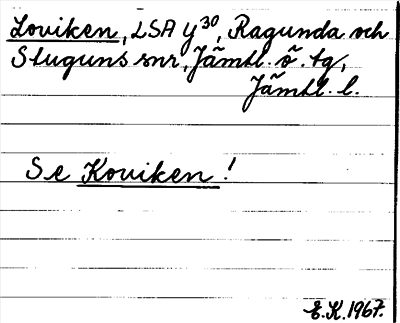 Loviken, LSA y³⁰, Ragunda och
Stuguns snr, Jämtl. ö. tg,
Jämtl. l.
Se Koviken!
E.K. 1967.